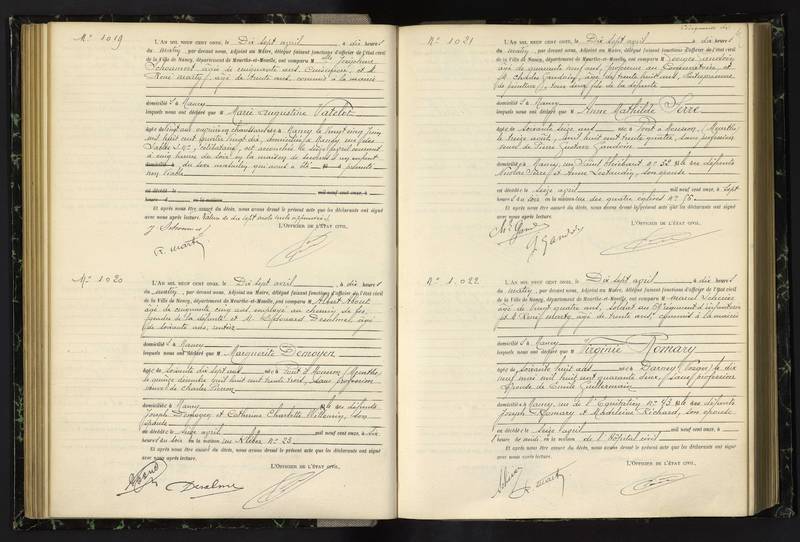 N° 1019
L'AN MIL NEUF CENT ONZE, le Dix sept avril, à dix heures
du matin, par devant nous, Adjoint au Maire, délégué faisant fonctions d'officier de l'état civil
de la Ville de Nancy, département de Meurthe-et-Moselle, ont comparu M elle Joséphine
âgé de cinquante ans, et M.
René Marty, âgé de trente ans, commis à la mairie
domiciliés à Nancy
lesquels nous ont déclaré que M Marie Augustine Vatelot
née à Nancy, le vingt cinq Juin
mil huit cent quatre vingt dix, domiciliée à Nancy rue des
Sables célibataire, est accouchée le seize avril courant
à cinq heures du soir en la maison de secours d'un enfant
du sexe masculin qui nous a été présenté
non viable
est décédé le mil neuf cent onze, à
heures d en la maison
Et après nous être assuré du décès, nous avons dressé le présent acte que les déclarants ont signé
avec nous après lecture.
L'OFFICIER DE L'ÉTAT CIVIL,
R. Marty
N° 1020
L'AN MIL NEUF CENT ONZE, le Dix sept avril, à dix heures
du matin, par devant nous, Adjoint au Maire, délégué faisant fonctions d'officier de l'état civil
de la Ville de Nancy, département de Meurthe-et-Moselle, ont comparu M. Albert
âgé de cinquante cinq ans, employé au chemin de fer,
gendre de la défunte et M. Edouard âgé
de soixante ans, rentier
domiciliés à Nancy
lesquels nous ont déclaré que M Marguerite Demoyen
âgée de soixante dix sept ans née à Pont à Mousson (Meurthe)
le quinze décembre mil huit cent trente trois, sans profession
veuve de Charles
domiciliée à Nancy fille des défunts
Joseph Demoyen et Catherine Charlotte son
épouse
est décédée le seize avril mil neuf cent onze, à dix
heures du soir en la maison rue Kléber n° 23
Et après nous être assuré du décès, nous avons dressé le présent acte que les déclarants ont signé
avec nous après lecture.
L'OFFICIER DE L'ÉTAT CIVIL,
N° 1021
L'AN MIL NEUF CENT ONZE, le Dix sept avril, à dix heures
du matin, par devant nous, Adjoint au Maire, délégué faisant fonctions d'officier de l'état civil
de la Ville de Nancy, département de Meurthe-et-Moselle, ont comparu M Georges
âgé de quarante ans, professeur au Conservatoire, et
M. Charles âgé de trente huit ans, entrepreneur
de peinture, tous deux fils de la défunte
domiciliés à Nancy
lesquels nous ont déclaré que M Anne Mathilde Serre
âgée de soixante seize ans née à Pont à Mousson (Meurthe)
le treize août mil huit cent trente quatre, sans profession
veuve de Pierre Gustave
domiciliée à Nancy, rue n° 52 fille des défunts
Nicolas Serre et Anne son épouse
est décédée le seize avril mil neuf cent onze, à sept
heures du soir en la maison rue des quatre églises n° 76
Et après nous être assuré du décès, nous avons dressé le présent acte que les déclarants ont signé
avec nous après lecture.
L'OFFICIER DE L'ÉTAT CIVIL,
N° 1.022
L'AN MIL NEUF CENT ONZE, le Dix sept avril, à dix heures
du matin, par devant nous, Adjoint au Maire, délégué faisant fonctions d'officier de l'état civil
de la Ville de Nancy, département de Meurthe-et-Moselle, ont comparu M Marcel
âgé de vingt quatre ans, soldat au Régiment d'infanterie
et M René Marty, âgé de trente ans, commis à la mairie
domiciliés à Nancy
lesquels nous ont déclaré que M Virginie Romary
âgée de soixante huit ans née à Darney (Vosges) le dix
neuf mai mil huit cent quarante deux, sans profession
épouse de Camille
domiciliée à Nancy, rue de l'Equitation n° 43 fille des défunts
Joseph Romary et Madeleine Richard, son épouse
est décédée le seize avril mil neuf cent onze, à
heures du midi, en la maison de l'Hôpital civil
Et après nous être assuré du décès, nous avons dressé le présent acte que les déclarants ont signé
avec nous après lecture.
L'OFFICIER DE L'ÉTAT CIVIL,
R. Marty